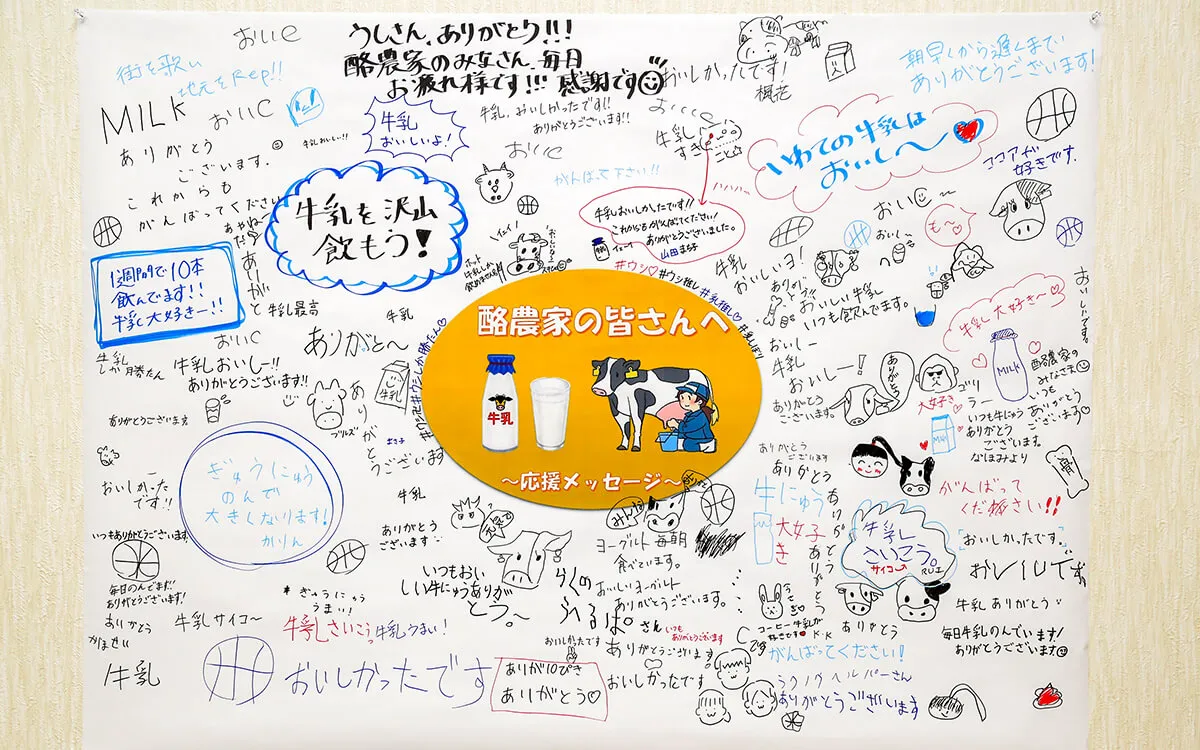 おいC
うしさん、ありがとう!!!
酪農家のみなさん、毎日
お疲れ様です!!! 感謝です
街を歌い
地元をRep!!
MILK
おいC
ありがとう
ございます。
これからも
がんばってください
牛乳
おいしいよ!
牛乳、おいしかったです!!
ありがとうございます!!
おいC
おいしかったです!
楓花
朝早くから遅くまで
ありがとうございます!
牛乳
すき
いわての牛乳は
おいし〜
ココアが
好きです。
がんばって下さい!!
牛乳を沢山
飲もう!
牛乳おいしかったです!!
これからもがんばってください!
ありがとうございました。
1週間で10本
飲んでます!!
牛乳大好きー!!
牛乳最高
牛乳
#ウシ♡
#ウシ推し
#乳推し♡
#乳しぼり
牛乳
おいしいヨ!
ありがとう
おいしい牛乳
いつも飲んでます。
おいし〜
も〜
牛乳大好き〜♡
MILK
おいしいです。
酪農家の
みなさま
いつも
ありがとう
ございます♡
おいC
ありがと〜
牛乳
しか勝たん
牛乳おいしー!!
ありがとうございます!!
牛乳
ブルズ
ありがとうございます
ありがとうございます
酪農家の皆さんへ
牛乳
〜応援メッセージ〜
おいしー
牛乳
おいしー!
ありがとう
ございます。
ありがとう
ゴリラー
大好き
いつも牛にゅう
ありがとう
ございます。
なほみより
Milk
おいしかった
です!!
ぎゅうにゅう
のんで
大きくなります!
かりん
牛乳
ありがとう
ございます
いつもありがとうございます
毎日のんでます!
ありがとうございます!
ありがとう
いつもおい
しい牛にゅうありが
とう。
みんな
ヨーグルト毎朝
食べています。
おいしいヨーグルト
ありがとうございます。
ありがとう
ございます
ありがとう
牛にゅう
大好き
ありがとう
牛乳
さいこう。
サイコー
RUI
がんばって
ください!!
骨
おいしかったです。
おいしいです。
牛乳ありがとう
毎日牛乳のんでいます!
ありがとうございます
牛乳サイコ〜
ぎゅうにゅう
うまい!
牛乳さいこう
牛乳うまい!
牛乳
おいしかったです
おいしかったです
ありが10ぴき
ありがとう♡
さん
いつも
ありがとうございます
ありがとうございます
おいしかったです
うさぎ
コーヒー牛乳が
好きです
K.K
ありがとう
がんばってください!
ラクノウヘルパーさん
ありがとうございます